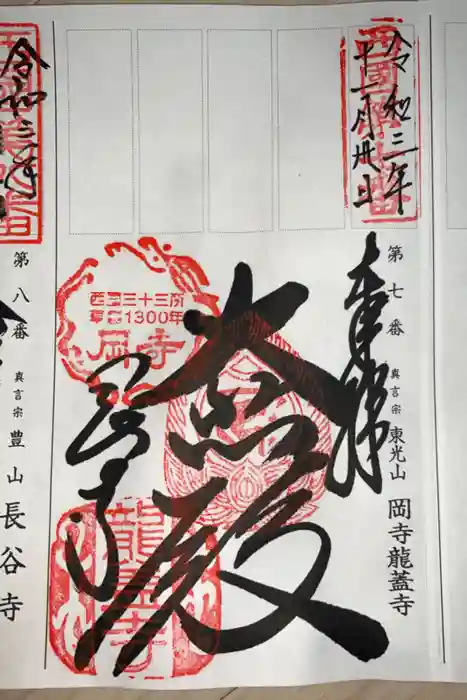 令和三年
十一月卅日
第七番
真言宗
東光山
岡寺龍蓋寺
奉拝
西国第七番
西国三十三所
草創1300年
岡寺
大悲殿
龍蓋寺
令和三年
第八番
真言宗
豊山
長谷寺